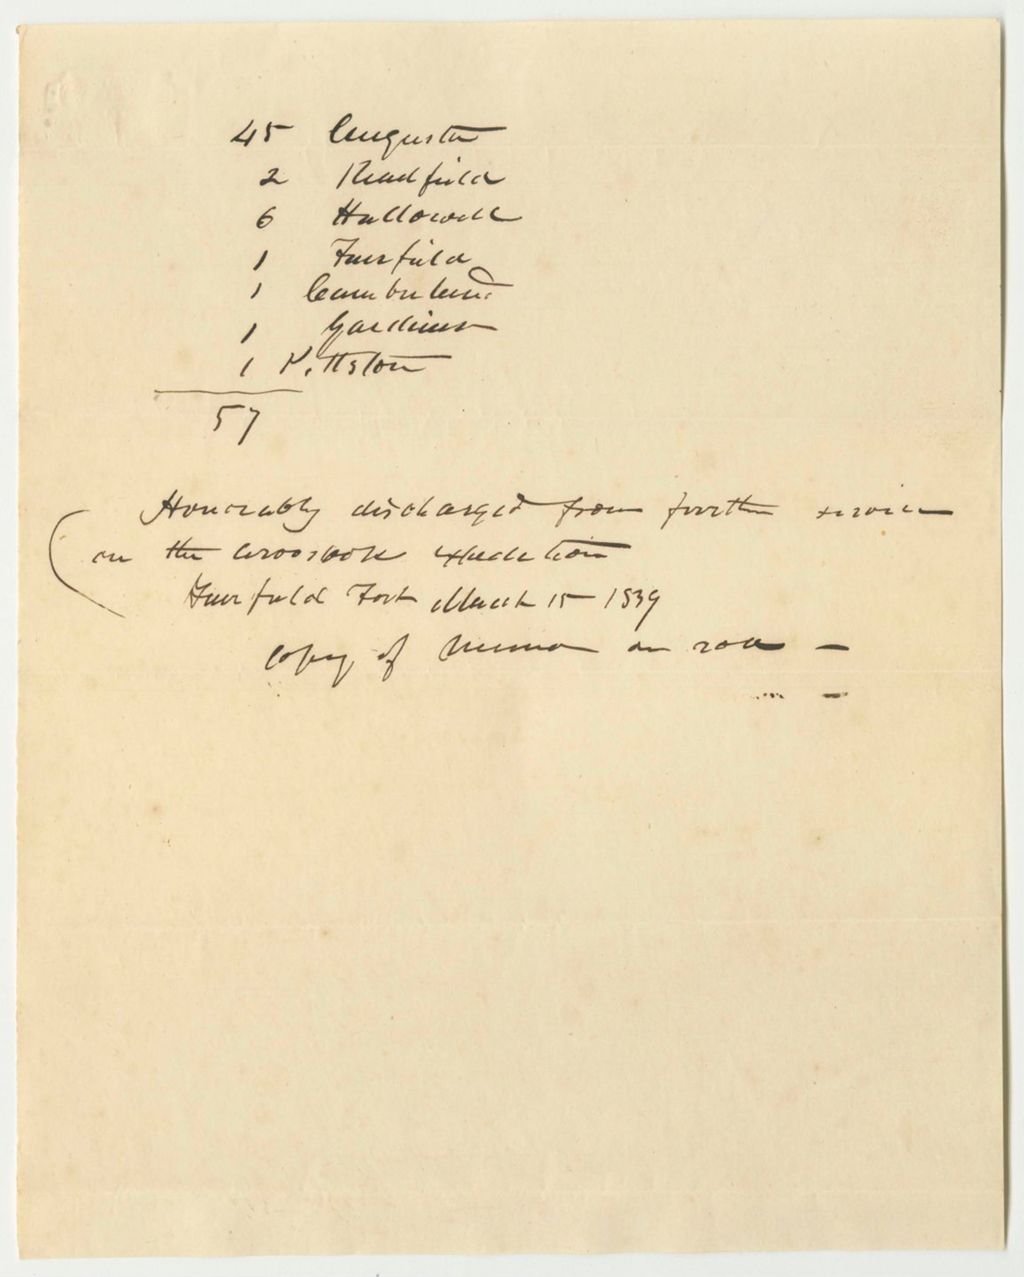 45 Augusta
2 Readfield
6 Hallowell
1 Fairfield
1 Cumberland
1 Gardiner
1 Pittston
57
Honorably discharged from further service
on the Aroostook expedition
Fairfield Fort March 15 1839
Copy of memo on roll —